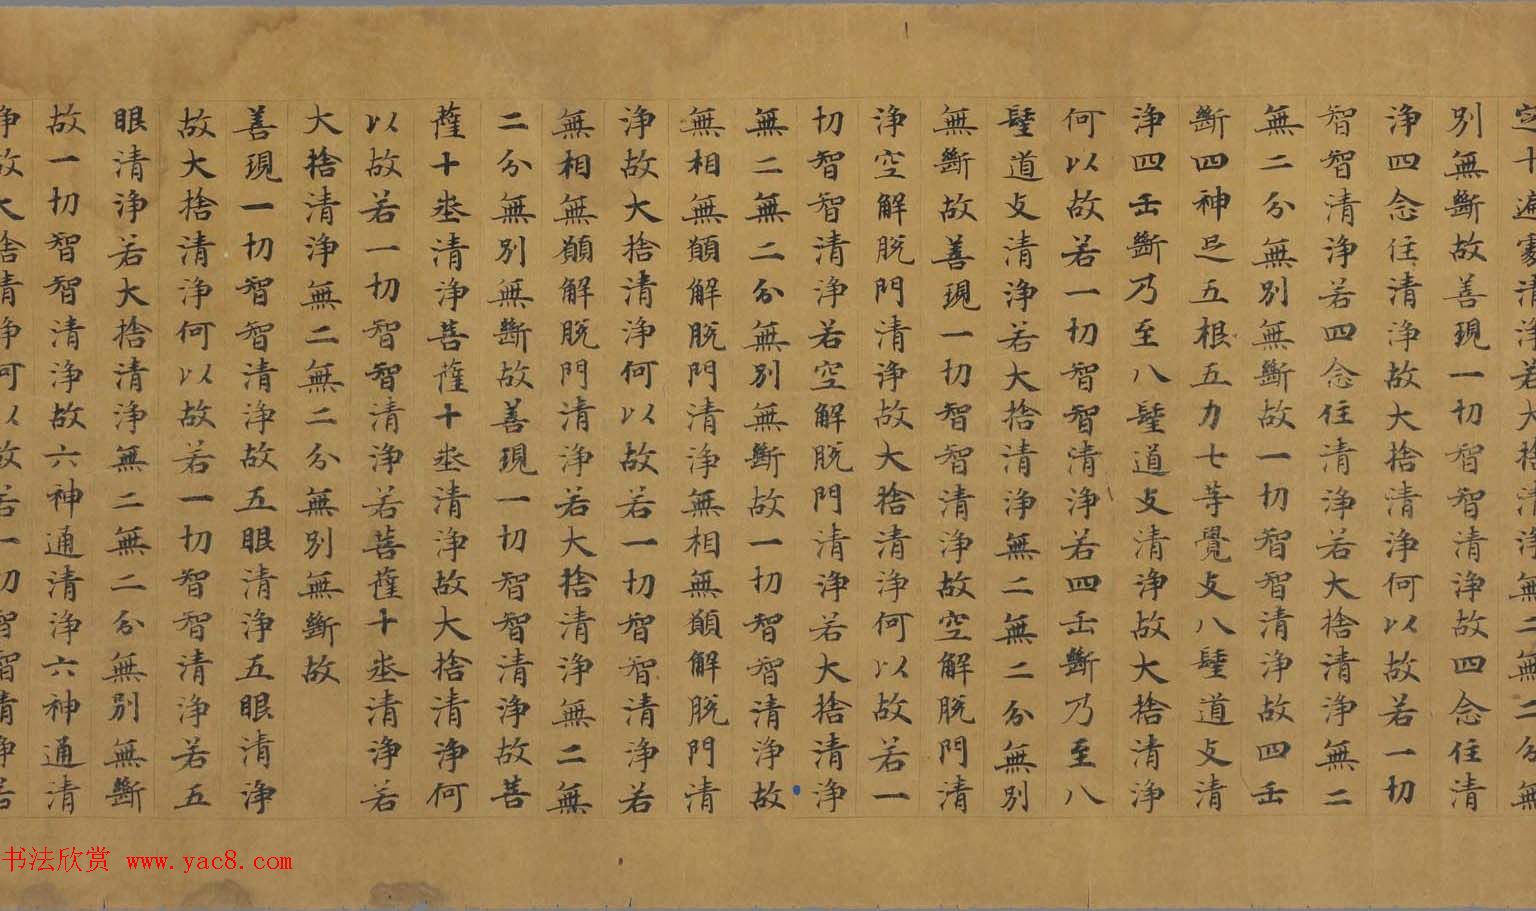 定十遍處清浄若大捨清浄無二無二分無
別無斷故善現一切智智清浄故四念住清
浄四念住清浄故大捨清浄何以故若一切
智智清浄若四念住清浄若大捨清浄無二
無二分無別無斷故一切智智清浄故四𠙺
斷四神足五根五力七等覺支八𨲢道支清
浄四𠙺斷乃至八𨲢道支清浄故大捨清浄
何以故若一切智智清浄若四𠙺斷乃至八
𨲢道支清浄若大捨清浄無二無二分無別
無斷故善現一切智智清浄故空解脫門清
浄空解脫門清浄故大捨清浄何以故若一
切智智清浄若空解脫門清浄若大捨清浄
無二無二分無別無斷故一切智智清浄故
無相無願解脫門清浄無相無願解脫門清
浄故大捨清浄何以故若一切智智清浄若
無相無願解脫門清浄若大捨清浄無二無
二分無別無斷故善現一切智智清浄故菩
薩十埊清浄菩薩十埊清浄故大捨清浄何
以故若一切智智清浄若菩薩十埊清浄若
大捨清浄無二無二分無別無斷故
善現一切智智清浄故五眼清浄五眼清浄
故大捨清浄何以故若一切智智清浄若五
眼清浄若大捨清浄無二無二分無別無斷
故一切智智清浄故六神通清浄六神通清
浄故大捨清浄何以故若一切智智清浄若
书法欣赏 www.yac8.com